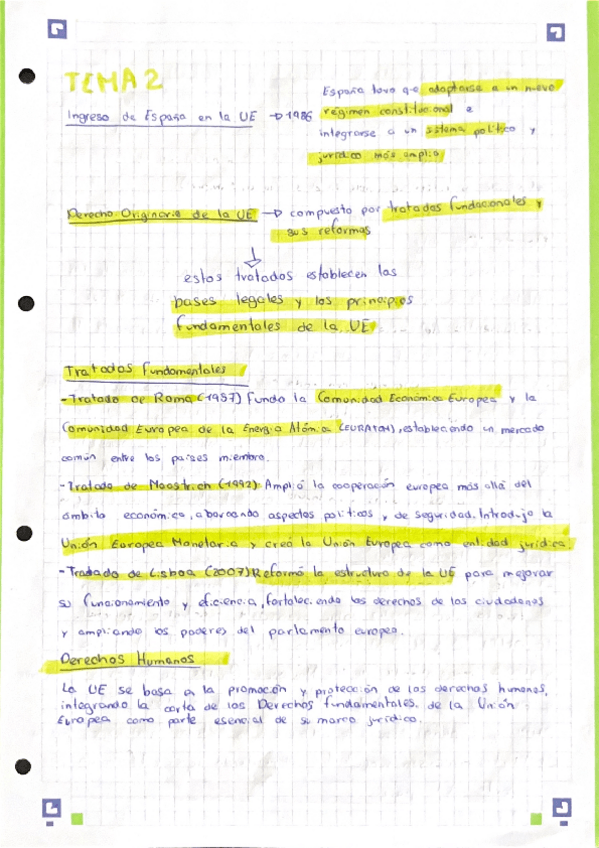 TEMA 2
Ingreso de España en la UE → 1986
España tuvo que adaptarse a un nuevo
régimen constitucional e
integrarse a un sistema político y
jurídico más amplio
Derecho Originario de la UE → compuesto por tratados fundacionales y
sus reformas
↓
estos tratados establecen las
bases legales y los principios
fundamentales de la UE
Tratados fundamentales
-Tratado de Roma (1957) Fundo la Comunidad Económica Europea y la
Comunidad Europea de la Energía Atómica (EURATOM), estableciendo un mercado
común entre los países miembro.
-Tratado de Maastrich (1992) Amplió la cooperación europea más allá del
ámbito económico, abarcando aspectos políticos y de seguridad. Introdujo la
Unión Europea Monetaria y creó la Unión Europea como entidad jurídica.
-Tradado de Lisboa (2007) Reformó la estructura de la UE para mejorar
su funcionamiento y eficiencia, fortaleciendo los derechos de los ciudadanos
y ampliando los poderes del parlamento europeo.
Derechos Humanos
La UE se basa en la promoción y protección de los derechos humanos,
integrando la carta de los Derechos fundamentales de la Unión
Europea como parte esencial de su marco jurídico.